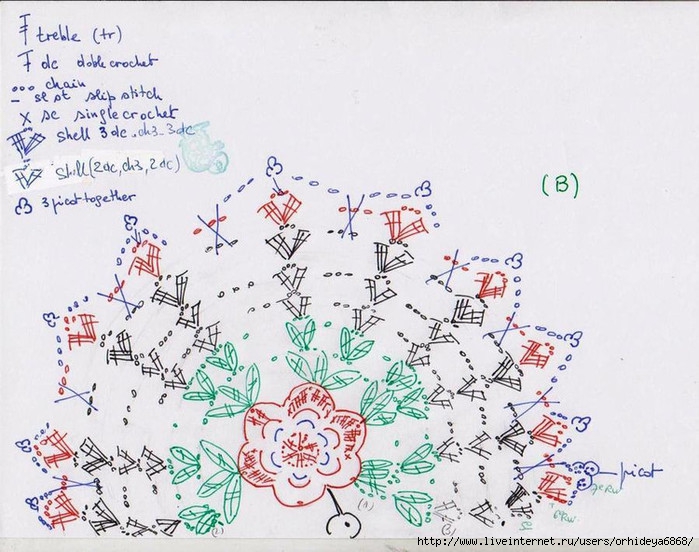 treble (tr)
dc doble crochet
chain
sl st slip stitch
x sc single crochet
shell 3dc, ch3, 3dc
shell (2dc, ch3, 2dc)
3 picot together
(B)
picot
7eRW
6RW.
5e
(1)
(3)
http://www.liveinternet.ru/users/orhideya6868/